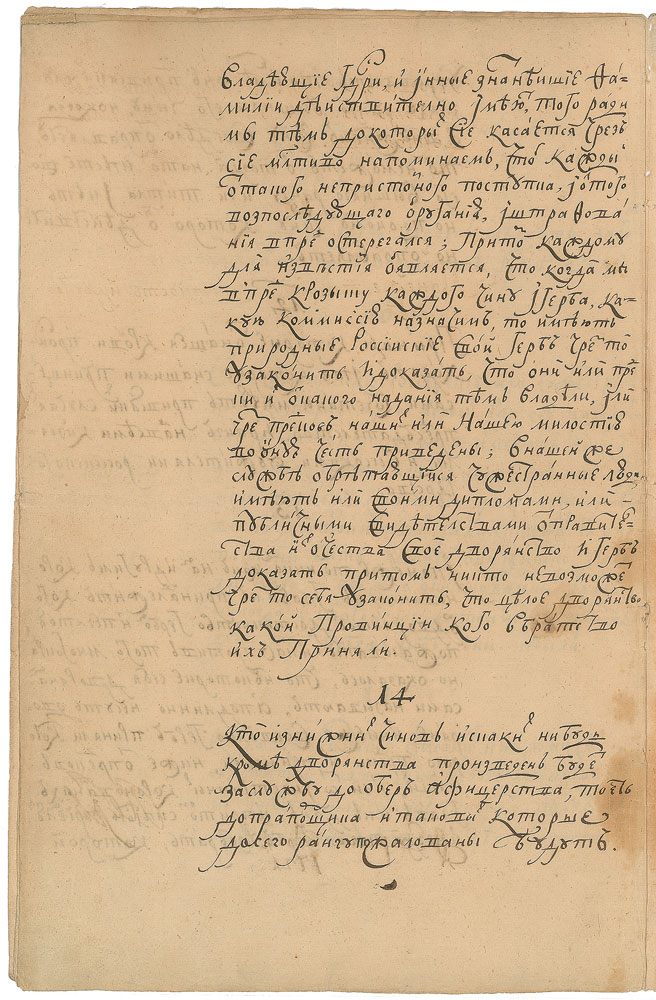 владѣющїе Гдри, и инные знатнѣишїе фа-
милїи дѣиствително имѣю, того ради
мы тѣмъ до которы сїе касаетца чрезъ
сїе млтиво напоминаемъ, чтоб кажды
ѿ такого непристоиного поступка, и ѿ того
возпослѣдующаго оругания, и штрафова
ния впред остерегался; притом каждому
для извѣстия обявляется, что когда мы
впред к розыску каждого чину и герба, ка-
кую комиссию назначимъ, то имѣютъ
природные Россиские свой гербъ чрез то
узаконить и доказать, что они или пред
ки и ѿ какого надания тѣмъ владели, или
чрез предковъ наши или Нашею милостию
во оную честь приведены; в нашей же
службѣ обрѣтающийся чужестранные люди
имѣютъ или своими дипломами, или -
публичными свидѣтелствами ѿ правите-
ства и ѿечества свое дворянство и гербъ
доказать притомъ никто невозможе
чрез то себя узаконить, что цѣлое дворянство
какой Провинции кого в братство
ихъ Приняли.
14
Кто из нижни чиновъ и из каки нибудь
кромѣ дворянства произведенъ буде
за службу до оберъ афицерства, то есть
до прапощика и таковы которые
до сего рангу жалованы будутъ.